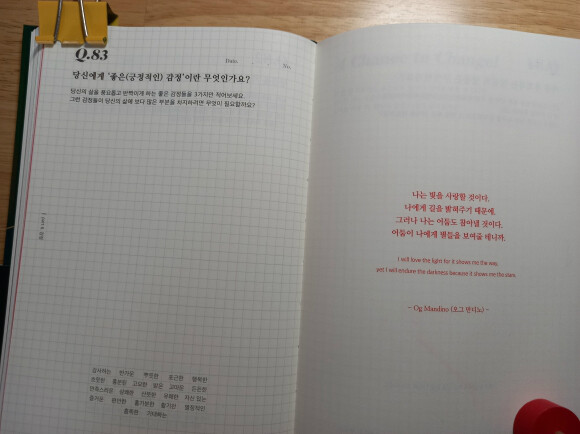 Q.83
Date. No.
당신에게 '좋은(긍정적인) 감정'이란 무엇인가요?
당신의 삶을 풍요롭고 반짝이게 하는 좋은 감정들을 3가지만 적어보세요.
그런 감정들이 당신의 삶에 보다 많은 부분을 차지하려면 무엇이 필요할까요?
감사하는 반가운 뿌듯한 포근한 행복한
흥분된 고요한 밝은 고마운 든든한
만족스러운 상쾌한 신뿐한 유쾌한 자신 있는
즐거운 편안한 홀가분한 활기찬 열정적인
충족한 기대되는
나는 빛을 사랑할 것이다.
나에게 길을 밝혀주기 때문에.
그러나 나는 어둠도 참아낼 것이다.
어둠이 나에게 별들을 보여줄 테니까.
I will love the light for it shows me the way,
yet I will endure the darkness because it shows me the stars.
- Og Mandino (오그 만디노) -